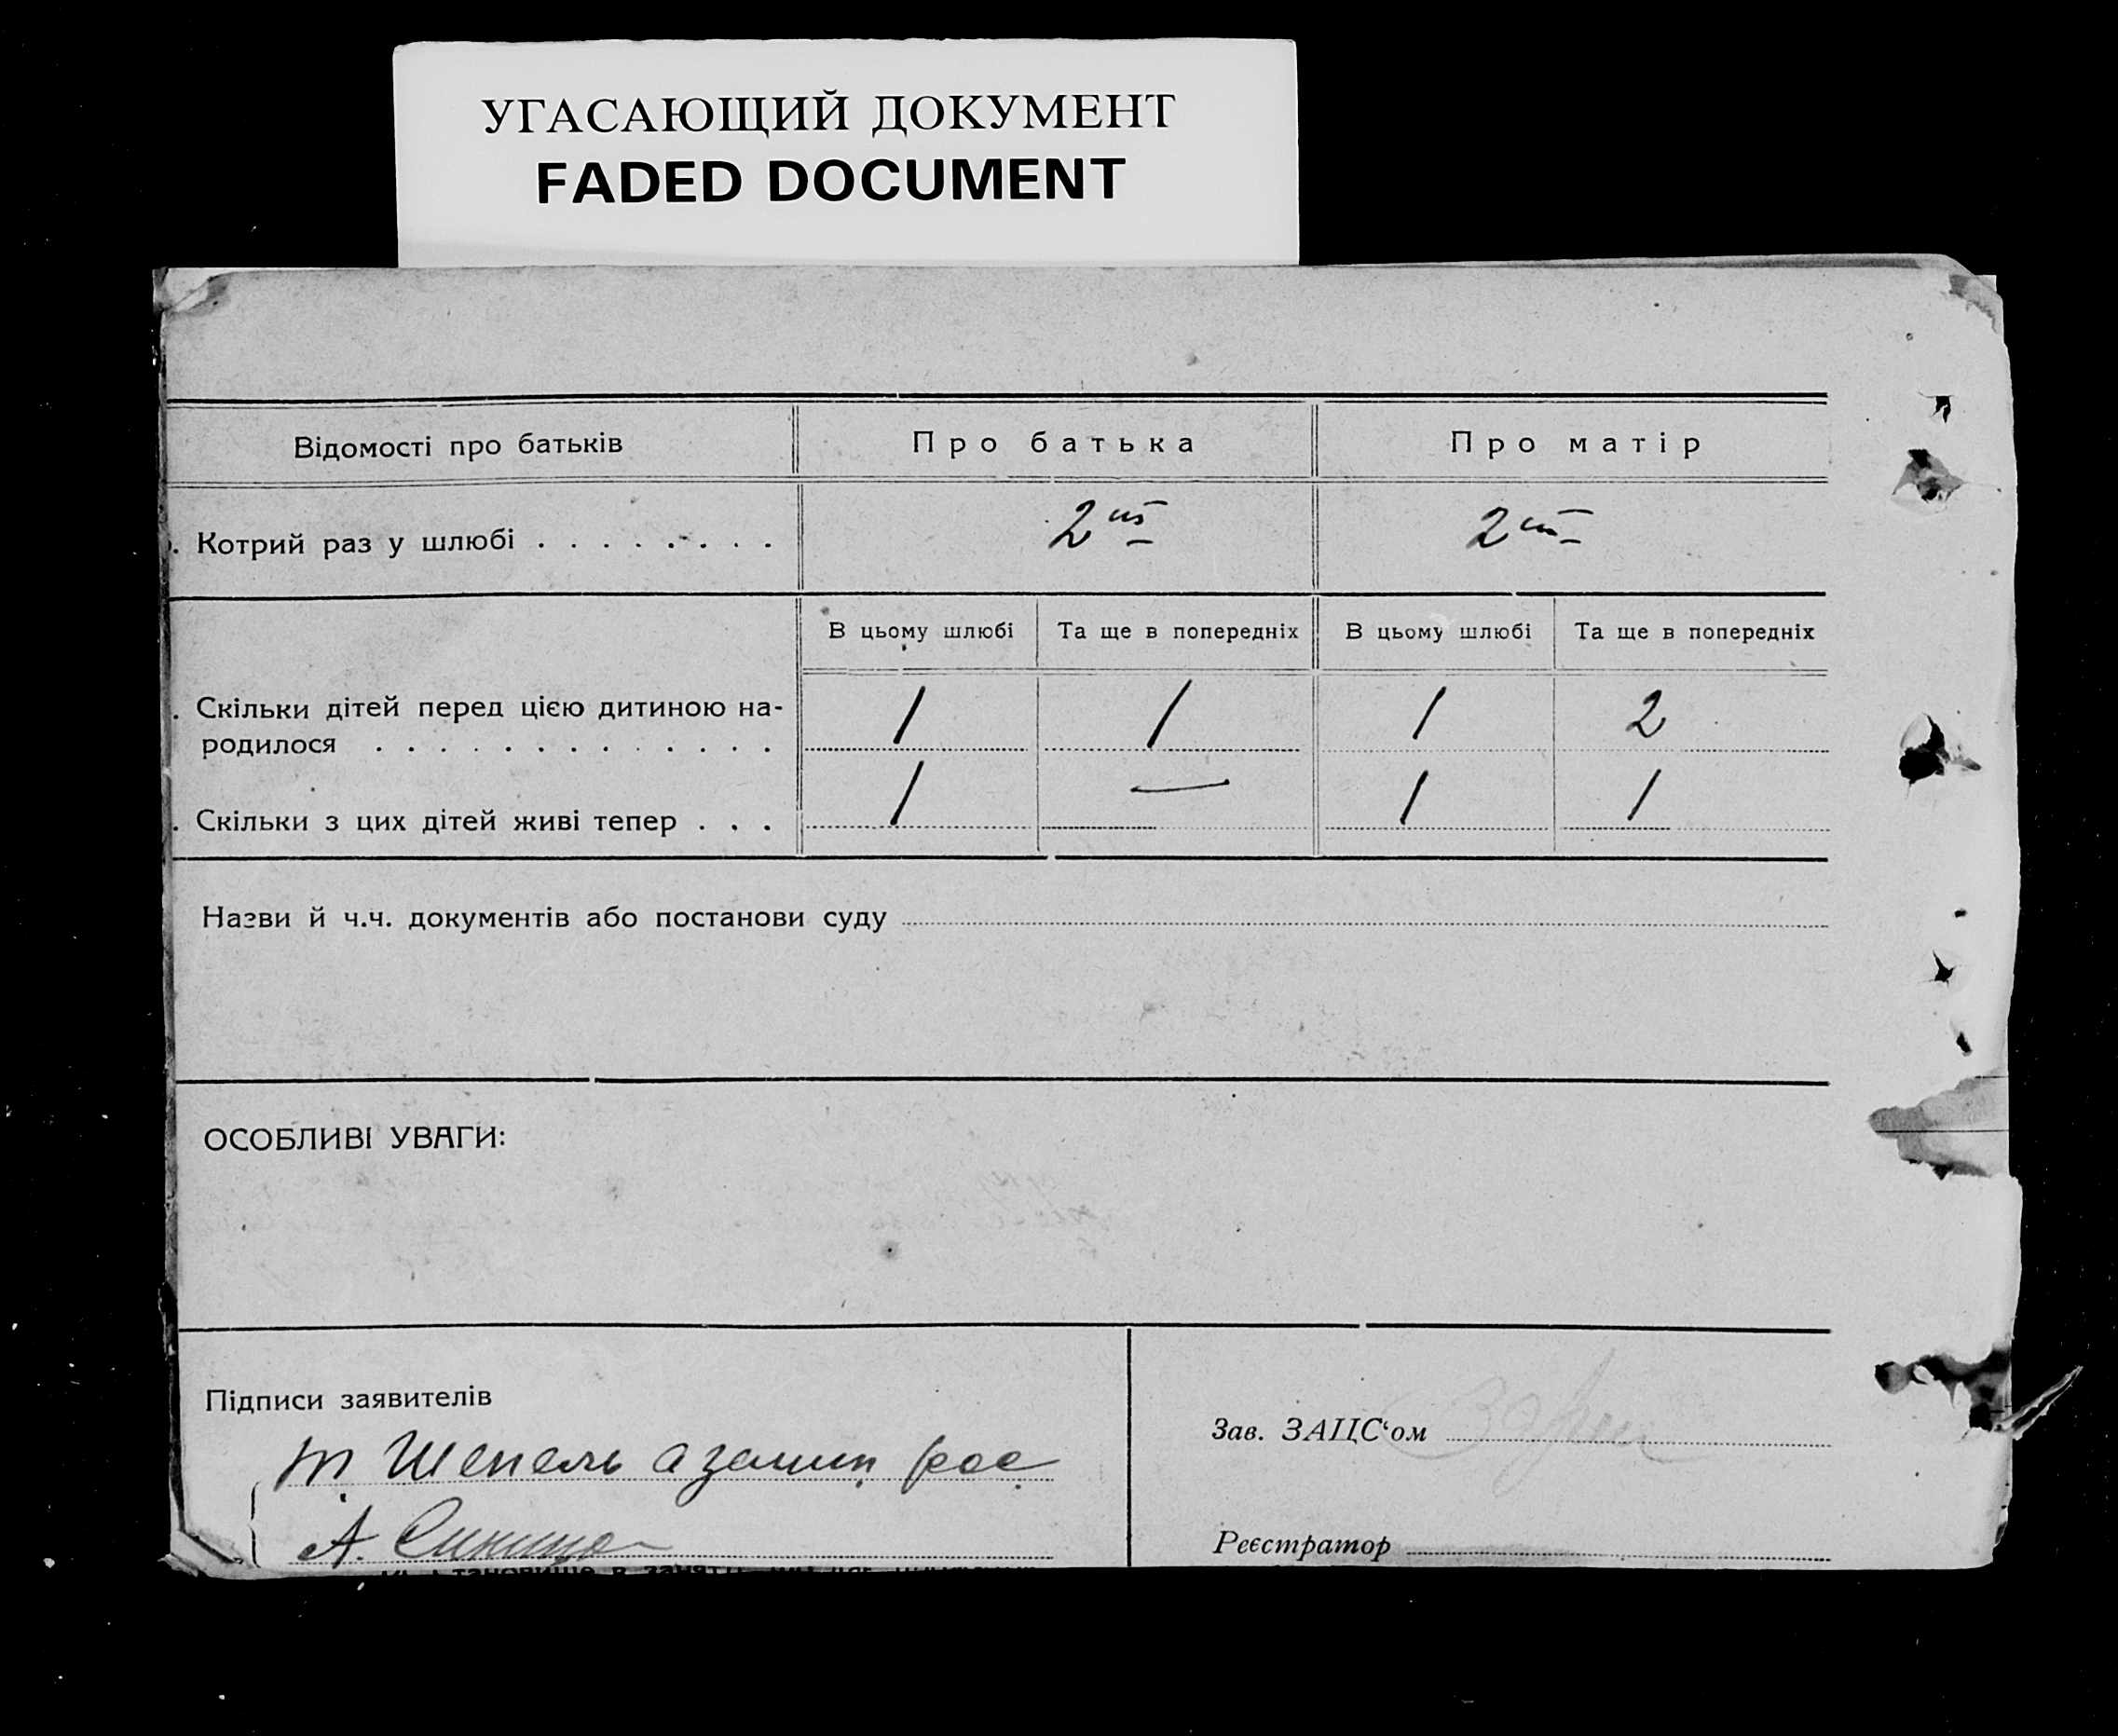 УГАСАЮЩИЙ ДОКУМЕНТ
FADED DOCUMENT
Відомості про батьків
Про батька
Про матір
Котрий раз у шлюбі
2ий
2ий
В цьому шлюбі
Та ще в попередніх
В цьому шлюбі
Та ще в попередніх
Скільки дітей перед цією дитиною на-
родилося
1
1
1
2
Скільки з цих дітей живі тепер
1
—
1
1
Назви й ч.ч. документів або постанови суду
ОСОБЛИВІ УВАГИ:
Підписи заявителів
Шепель
А. Синица
Зав. ЗАЦС‘ом
Реєстратор